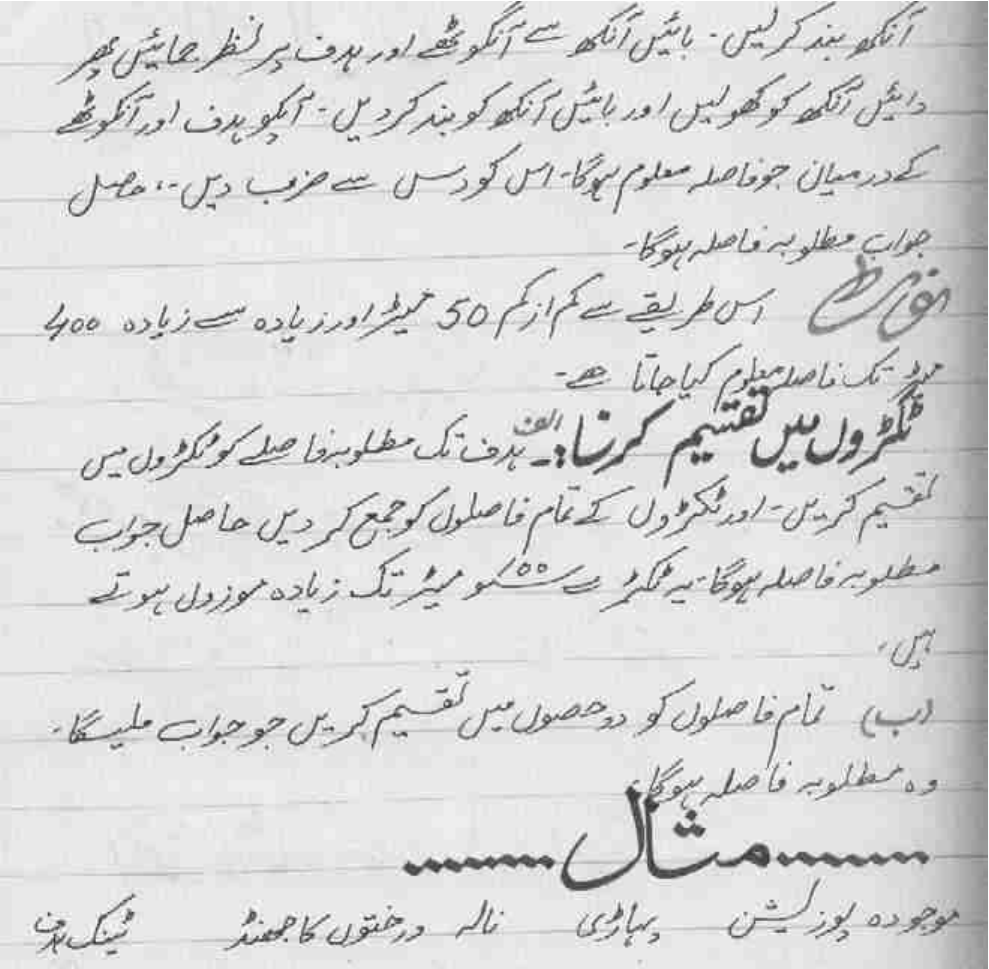 آنکھ بند کرلیں۔ بائیں آنکھ سے آنگوٹھے اور ہدف پر نظر جمائیں پھر
دائیں آنکھ کو کھولیں اور بائیں آنکھ کو بند کر دیں۔ آپکو ہدف اور آنگوٹھے
کے درمیان جو فاصلہ معلوم ہوگا۔ اس کو دس سے ضرب دیں۔ حاصل
جواب مطلوبہ فاصلہ ہوگا۔
اس طریقے سے کم از کم 50 میٹر اور زیادہ سے زیادہ ۴۰۰
میٹر تک فاصلہ معلوم کیا جاتا ھے۔
ٹکڑوں میں تقسیم کرنا:۔ الف ہدف تک مطلوبہ فاصلے کو ٹکڑوں میں
تقسیم کریں۔ اور ٹکڑوں کے تمام فاصلوں کو جمع کر دیں حاصل جواب
مطلوبہ فاصلہ ہوگا۔ یہ ٹکڑے ۱۰۰ سو میٹر تک زیادہ موزوں ہوتے
ہیں۔
(ب) تمام فاصلوں کو دو حصوں میں تقسیم کریں جو جواب ملیگا۔
وہ مطلوبہ فاصلہ ہوگا۔
........مثال........
موجودہ پوزیشن پہاڑی نالہ درختوں کا جھنڈ ٹینک ہدف